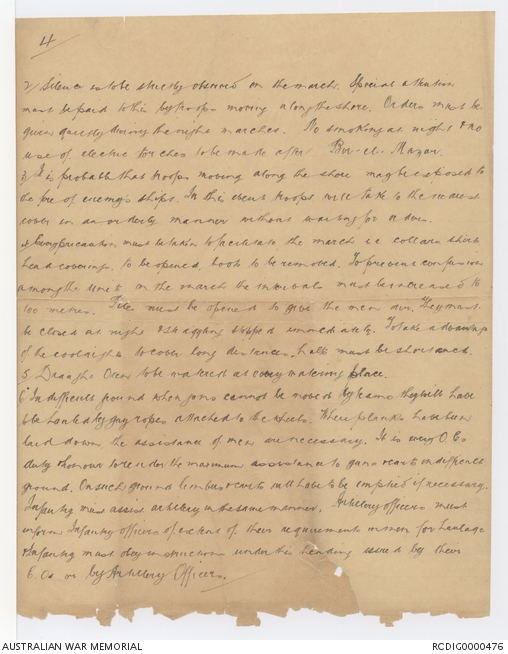 4
2/ Silence is to be strictly observed on the march. Special attention
must be paid to this by troops moving along the shore. Orders must be
given quietly during the night marches. No smoking at night & no
use of electric torches to be made after Bir-el-Mazar.
3/ It is probable that troops moving along the shore may be exposed to
the fire of enemy's ships. In this event troops will take to the nearest
cover in an orderly manner without waiting for orders.
4 Every precaution must be taken to facilitate the march i.e. collars shirts
head coverings, to be opened, boots to be removed. To prevent confusion
among the units on the march the intervals must be increased 5 to
100 metres. Files must be opened to give the men air. They must
be closed at night & straggling stopped immediately. To take advantage
of the cool nights to cover long distances, halts must be shortened.
5 Draught Oxen to be watered at every watering place.
6 In difficult ground when guns cannot be moved by teams they will have
to be hauled by guy ropes attached to the wheels. When planks have been
laid down the assistance of men are necessary. It is every O.Cs
duty & honour to render the maximum assistance to guns & carts in difficult
ground. On such ground limbers & carts will have to be emptied if necessary.
Infantry must assist artillery in the same manner. Artillery officers must
inform Infantry officers of extent of their requirements in men for haulage
& Infantry must obey instructions under this heading issued by their
C.Os or by Artillery Officers.
AUSTRALIAN WAR MEMORIAL
RCDIG0000476